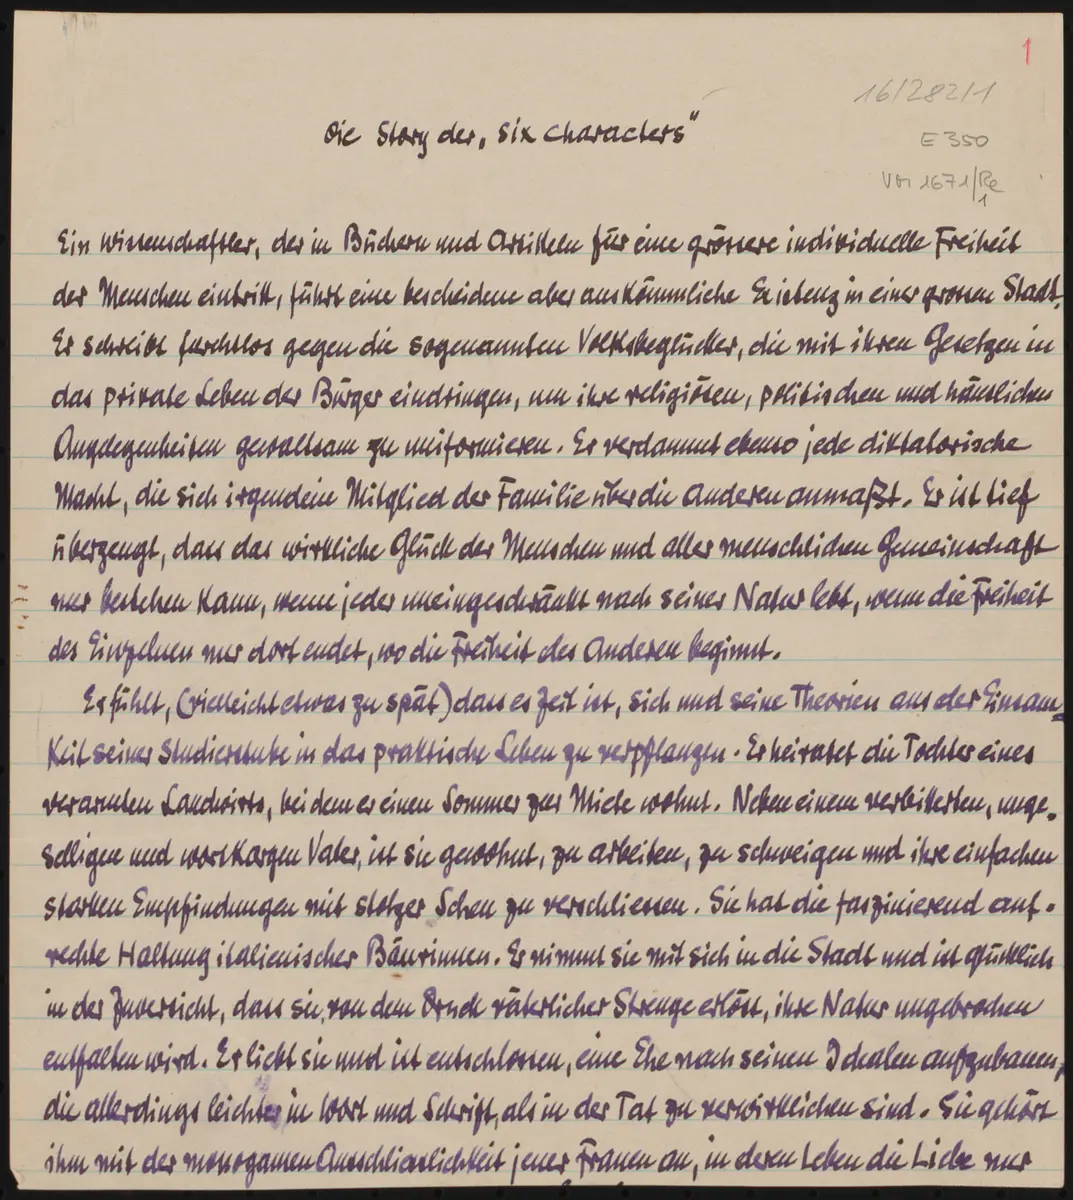 1
16/282/1
E 350
VM 1671/Re
1
Die Story der „six characters"
Ein Wissenschaftler, der in Büchern und Artikeln für eine grössere individuelle Freiheit
der Menschen eintritt, führt eine bescheidene aber auskömmliche Existenz in einer grossen Stadt.
Er schreibt furchtlos gegen die sogenannten Volksbeglücker, die mit ihren Gesetzen in
das private Leben der Bürger eindringen, um ihre religiösen, politischen und häuslichen
Angelegenheiten gewaltsam zu uniformieren. Er verdammt ebenso jede diktatorische
Macht, die sich irgendein Mitglied der Familie über die Anderen anmaßt. Er ist tief
überzeugt, dass das wirkliche Glück der Menschen und aller menschlichen Gemeinschaft
nur bestehen kann, wenn jeder uneingeschränkt nach seiner Natur lebt, wenn die Freiheit
des Einzelnen nur dort endet, wo die Freiheit des Anderen beginnt.
Er fühlt, (vielleicht etwas zu spät) dass es Zeit ist, sich und seine Theorien aus der Einsam-
keit seiner Studierstube in das praktische Leben zu verpflanzen. Er heiratet die Tochter eines
verarmten Landwirts, bei dem er einen Sommer zur Miete wohnt. Neben einem verbitterten, unge-
selligen und wortkargen Vater, ist sie gewohnt, zu arbeiten, zu schweigen und ihre einfachen
starken Empfindungen mit stolzer Scheu zu verschliessen. Sie hat die faszinierend auf-
rechte Haltung italienischer Bäurinnen. Er nimmt sie mit sich in die Stadt und ist glücklich
in der Zuversicht, dass sie, von dem Druck väterlicher Strenge erlöst, ihre Natur ungebrochen
entfalten wird. Er liebt sie und ist entschlossen, eine Ehe nach seinen Idealen aufzubauen,
die allerdings leichter in Wort und Schrift, als in der Tat zu verwirklichen sind. Sie gehört
ihm mit der monogamen Ausschliesslichkeit jener Frauen an, in deren Leben die Liebe nur